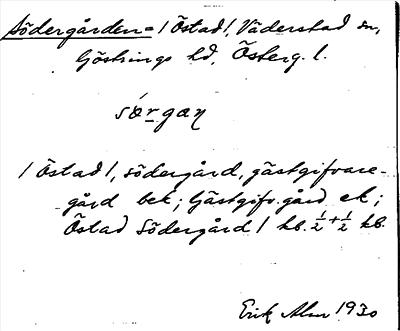 Södergården = / Östad /, Väderstad sn,
Göstrings hd, Österg. l.
sǿr gaɳ
/ Östad /, södergård, gästgifvare-
gård bek; Gästgifv.gård ek;
Östad Södergård / kb. ½ + ½ kb.
Erik Alm 1930